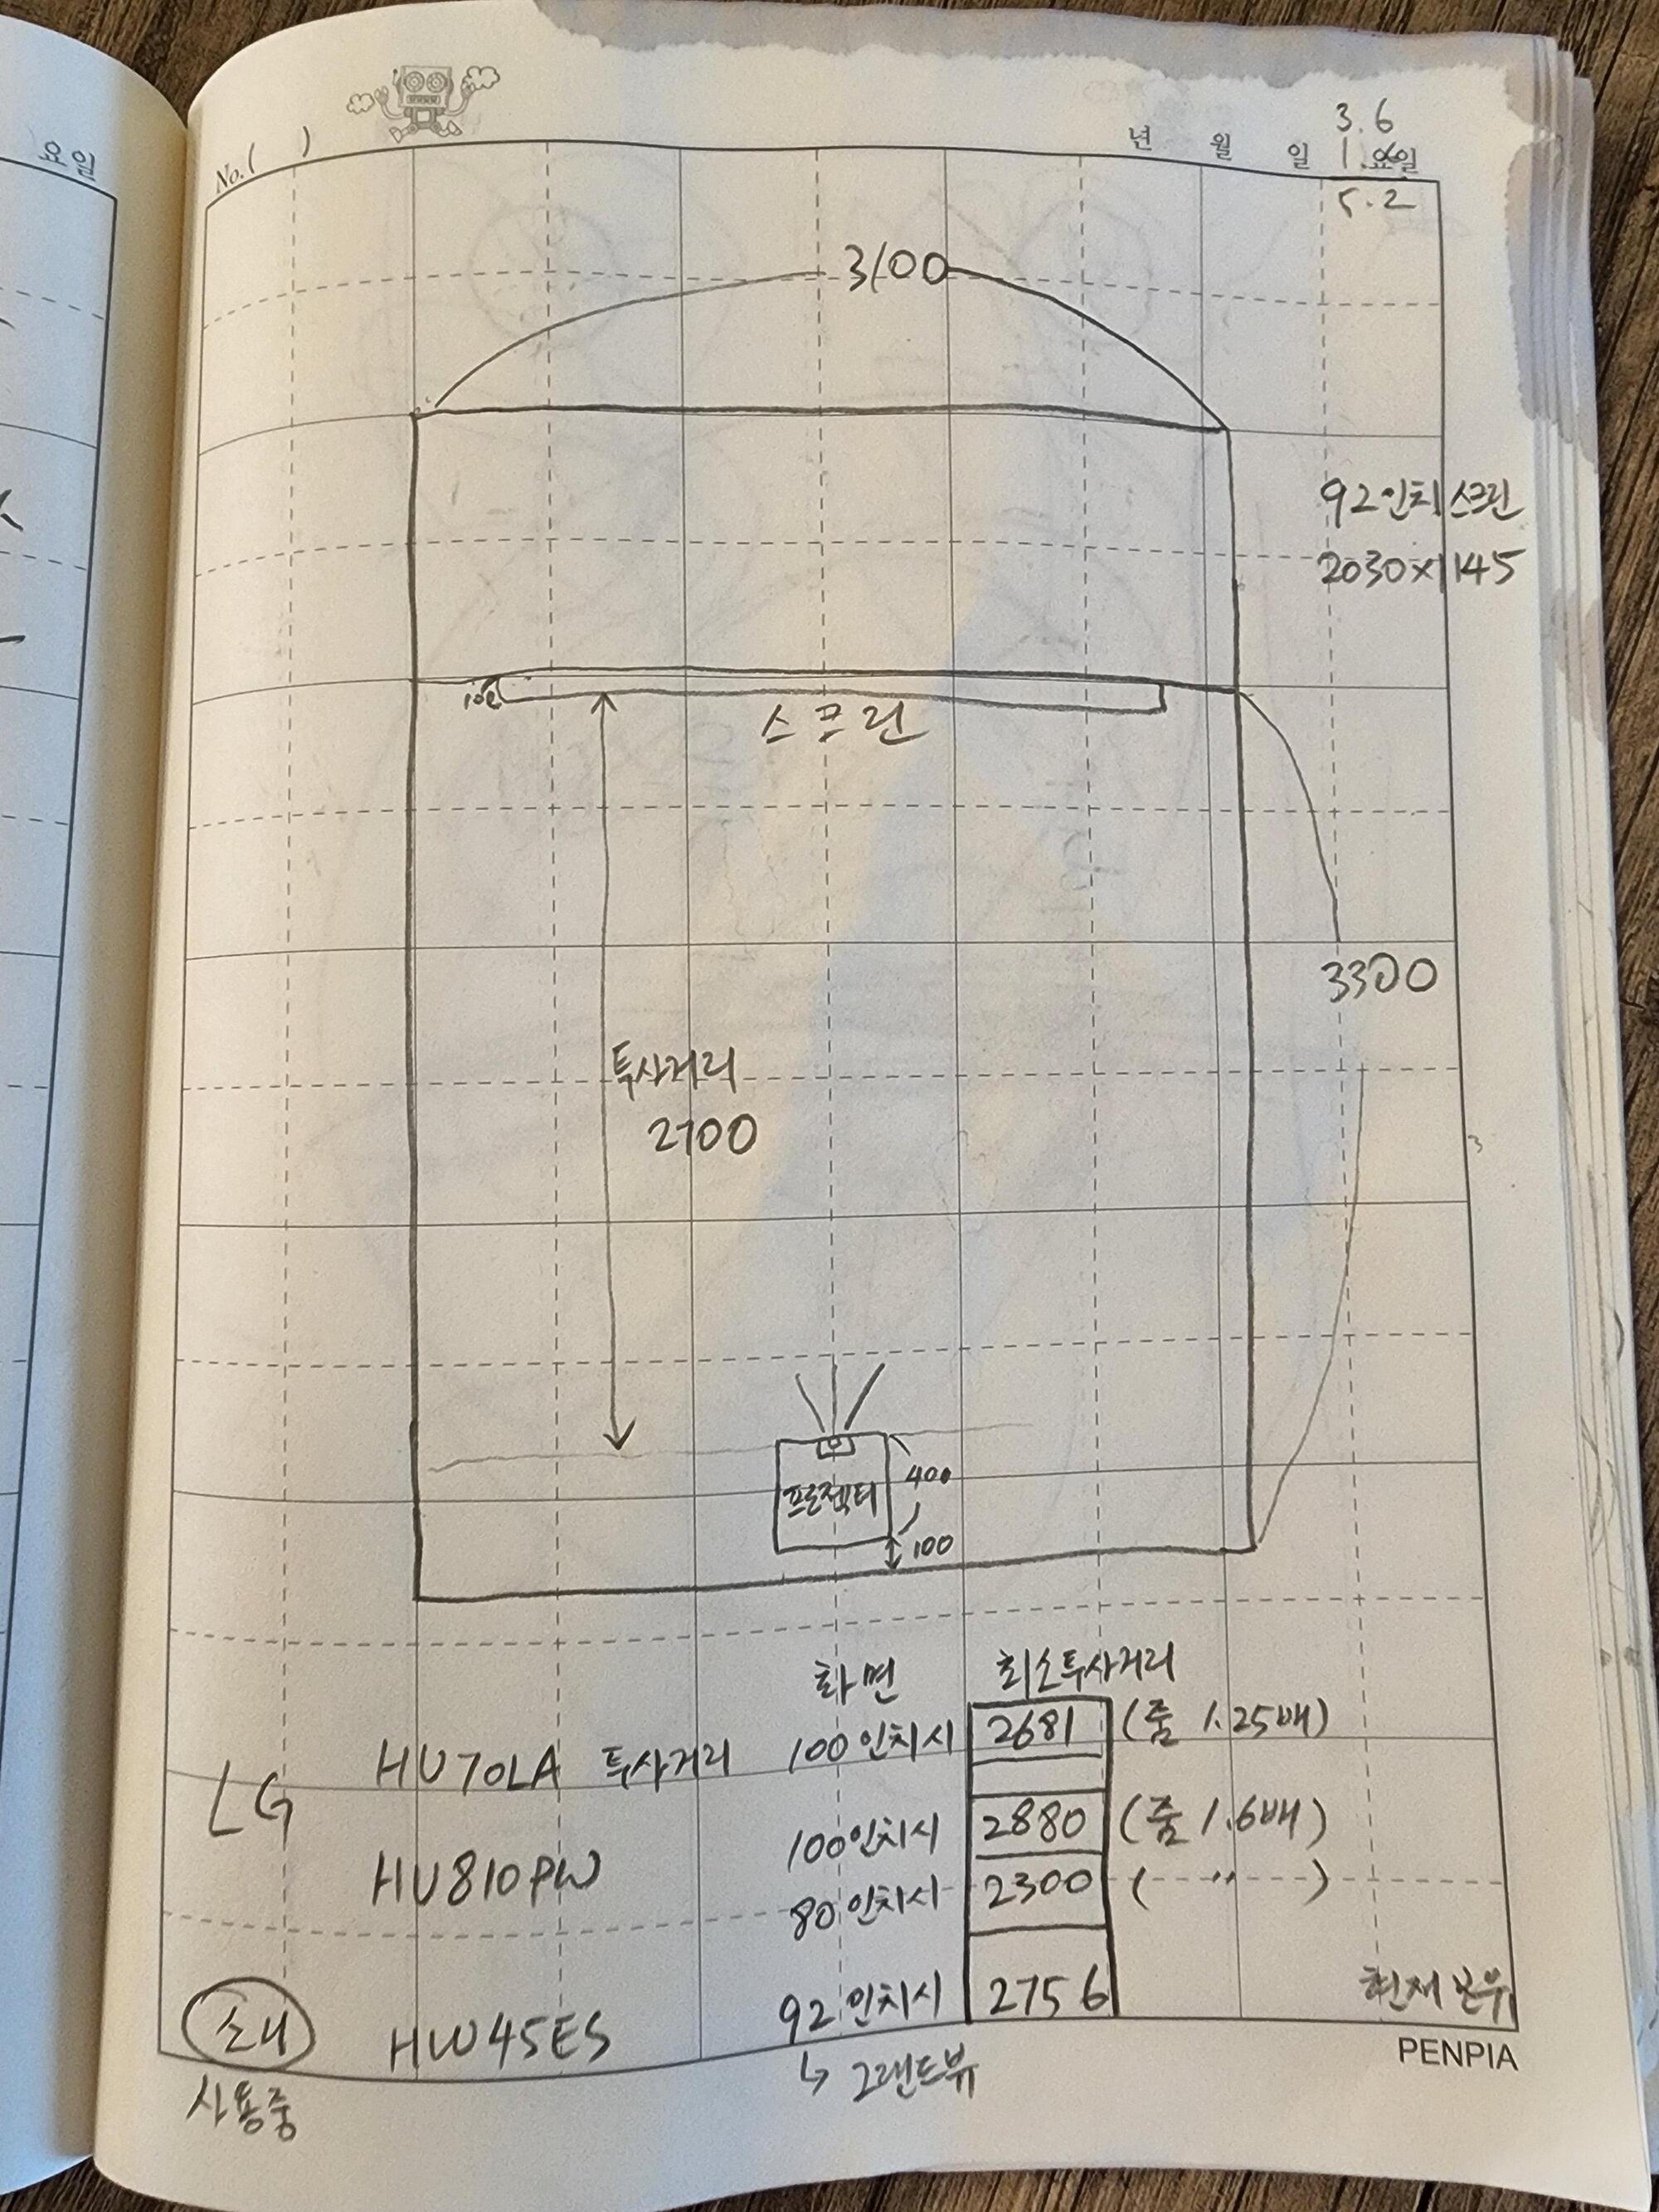 요일
No.( )
년 월 일 요일
3.6
5.2
3100
92인치 스크린
2030x1145
100
스크린
3300
투사거리
2700
프로젝터
400
100
화면 최소투사거리
LG
HU70LA 투사거리 100인치시 2681 (줌 1.25배)
HU810PW 100인치시 2880 (줌 1.6배)
80인치시 2300 ( 〃 )
소니 HW45ES 92인치시 2756 현재 보유
사용중
↳ 그랜드뷰
PENPIA